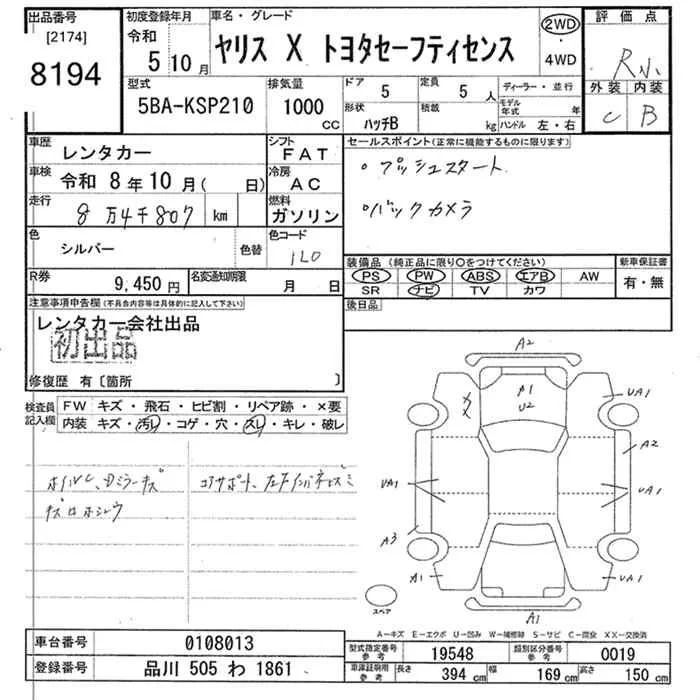 出品番号
[2174]
8194
初度登録年月
令和
5 10 月
車名・グレード
ヤリス X トヨタセーフティセンス
2WD
・
4WD
評価点
R小
外装 内装
C B
型式
5BA-KSP210
排気量
1000
CC
ドア
5
定員
5 人
ディーラー・並行
形状
ハッチB
積載
kg
モデル年式 年
ハンドル 左・右
車歴
レンタカー
シフト
FAT
車検 令和 8 年 10 月 ( 日)
冷房
AC
走行
8 万4千807 km
燃料
ガソリン
色
シルバー
色替
色コード
1L0
R券
9,450 円
名変通知期限
月 日
セールスポイント(正常に機能するものに限ります)
・プッシュスタート
・バックカメラ
装備品 (純正品に限り○をつけてください)
新車保証書
PS PW ABS エアB AW
SR ナビ TV カワ
有・無
後日品
注意事項申告欄(不具合内容等は具体的に記入して下さい)
レンタカー会社出品
初出品
修復歴 有〔箇所 〕
検査員記入欄
FW キズ・飛石・ヒビ割・リペア跡・×要
内装 キズ・汚レ・コゲ・穴・スレ・キレ・破レ
ホイルC、Dミラーキズ
キズ
コアサポート、左Fインパネ
A2
A1
U2
UA1
A2
UA1
UA1
A3
A1
UA1
A1
スペア
A―キズ E―エクボ U―凹み W―補修跡 S―サビ C―腐食 XX―交換済
車台番号
0108013
登録番号
品川 505 わ 1861
型式指定番号
参考
19548
類別区分番号
参考
0019
車庫証明用
参考
長さ
394 cm
幅
169 cm
高さ
150 cm